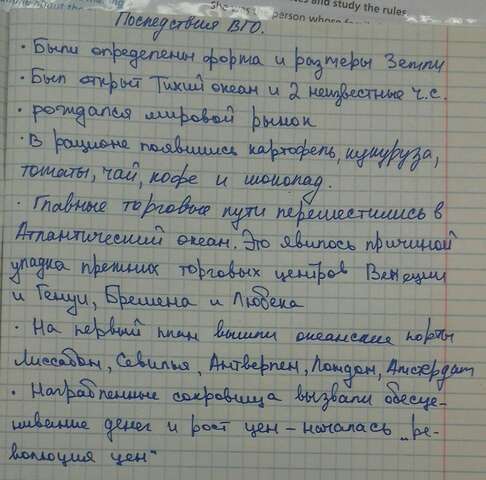 and study the rules
person whose
Последствия ВГО.
· Были определены форма и размеры Земли
· Был открыт Тихий океан и 2 неизвестные ч.с.
· рождался мировой рынок
· В рационе появились картофель, кукуруза,
томаты, чай, кофе и шоколад.
· Главные торговые пути переместились в
Атлантический океан. Это явилось причиной
упадка прежних торговых центров Венеции
и Генуи, Бремена и Любека
· На первый план вышли океанские порты
Лиссабон, Севилья, Антверпен, Лондон, Амстердам
· Награбленные сокровища вызвали обесце-
нивание денег и рост цен – началась „ре-
волюция цен"